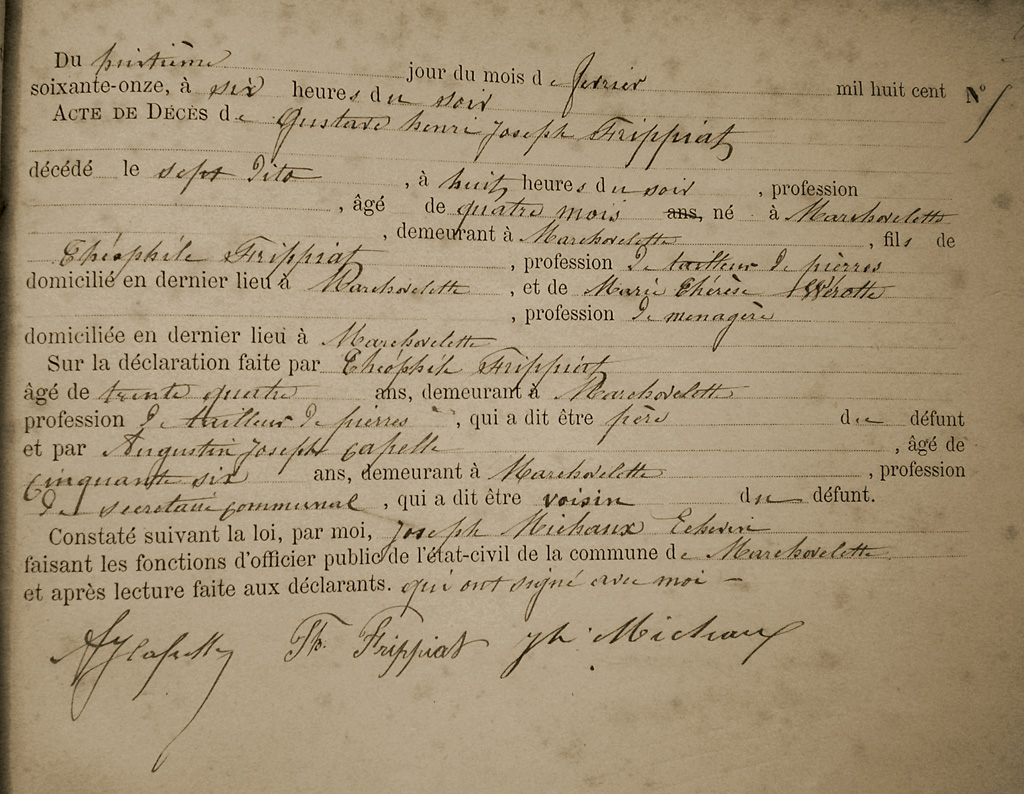 Du huitième jour du mois de fevrier mil huit cent N° 5
soixante-onze, à six heures du soir
ACTE DE DÉCÈS de Gustave henri Joseph Frippiat
décédé le sept Dito, à huit heures du soir, profession
, âgé de quatre mois ans, né à Marchovelette
, demeurant à Marchovelette, fils de
Théophile Frippiat, profession de tailleur de pierres
domicilié en dernier lieu à Marchovelette, et de Marie Thérèse Wérotte
, profession de menagère
domiciliée en dernier lieu à Marchovelette
Sur la déclaration faite par Théophile Frippiat
âgé de trente quatre ans, demeurant à Marchovelette
profession de tailleur de pierres, qui a dit être père du défunt
et par Augustin Joseph Capelle, âgé de
cinquante six ans, demeurant à Marchovelette, profession
de secretaire communal, qui a dit être voisin du défunt.
Constaté suivant la loi, par moi, Joseph Michaux Echevin
faisant les fonctions d'officier public de l'état-civil de la commune de Marchovelette
et après lecture faite aux déclarants. qui ont signé avec moi –
AJCapelle Th. Frippiat Jh Michaux